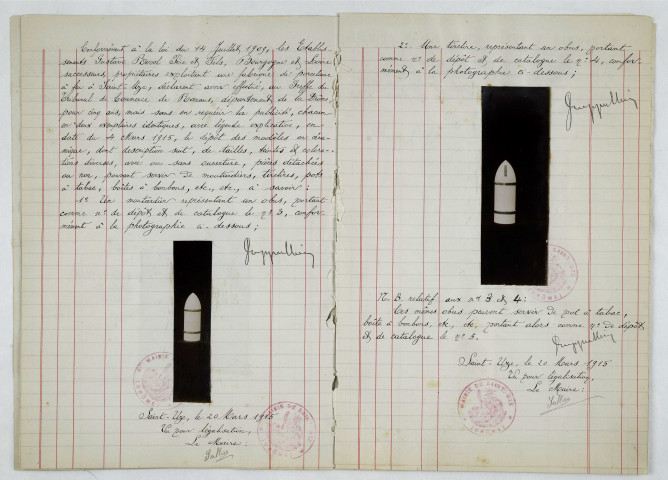 Conformément à la loi du 14 Juillet 1909, les Etablis-
sements Gustave Revol Père et Fils,
successeurs, propriétaires exploitant une fabrique de porcelaine
à feu à Saint-Uze, déclarent avoir effectué, au Greffe du
Tribunal de Commerce de Romans, département de la Drôme,
pour cinq ans, mais sans en requérir la publicité, chacun
en deux exemplaires identiques, avec légende explicative, en
date du 4 Mars 1915, le dépôt des modèles en céra-
mique, dont description suit, de tailles, teintes et colora-
tions diverses, avec ou sans ouverture, pièces détachées
ou non, pouvant servir de moutardiers, tirelires, pots
à tabac, boîtes à bonbons, etc., etc., à savoir :
1° Un moutardier représentant un obus, portant
comme n° de dépôt et de catalogue le n° 3, confor-
mément à la photographie ci-dessous ;
Saint-Uze, le 20 Mars 1915
Vu pour légalisation,
Le Maire :
2° Une tirelire, représentant un obus, portant
comme n° de dépôt et de catalogue le n° 4, confor-
mément à la photographie ci-dessous ;
N. B. relatif aux n° 3 et 4 :
Ces mêmes obus peuvent servir de pot à tabac,
boîte à bonbons, etc., etc., portant alors comme n° de dépôt
et de catalogue le n° 5.
Saint-Uze, le 20 Mars 1915
Vu pour légalisation,
Le Maire :